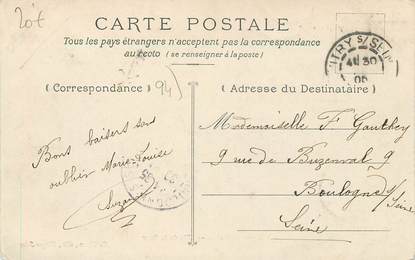 20€
CARTE POSTALE
Tous les pays étrangers n'acceptent pas la correspondance
au recto (se renseigner à la poste)
(Correspondance)
94
Adresse du Destinataire
VITRY S/ SEINE
30
Bons baisers sans
oublier Marie-Louise
Suzanne
Mademoiselle F Gauthey
9 rue de Buzenval 9
Boulogne s/Seine
Seine